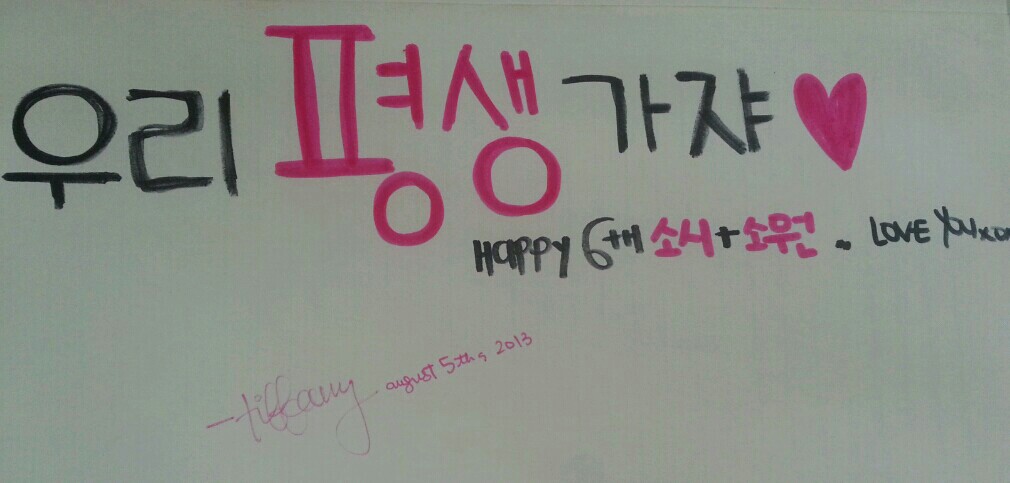 우리 평생 가쟈♥
HAPPY 6th 소시+소원~ LOVE YOU xo
-tiffany. august 5th, 2013